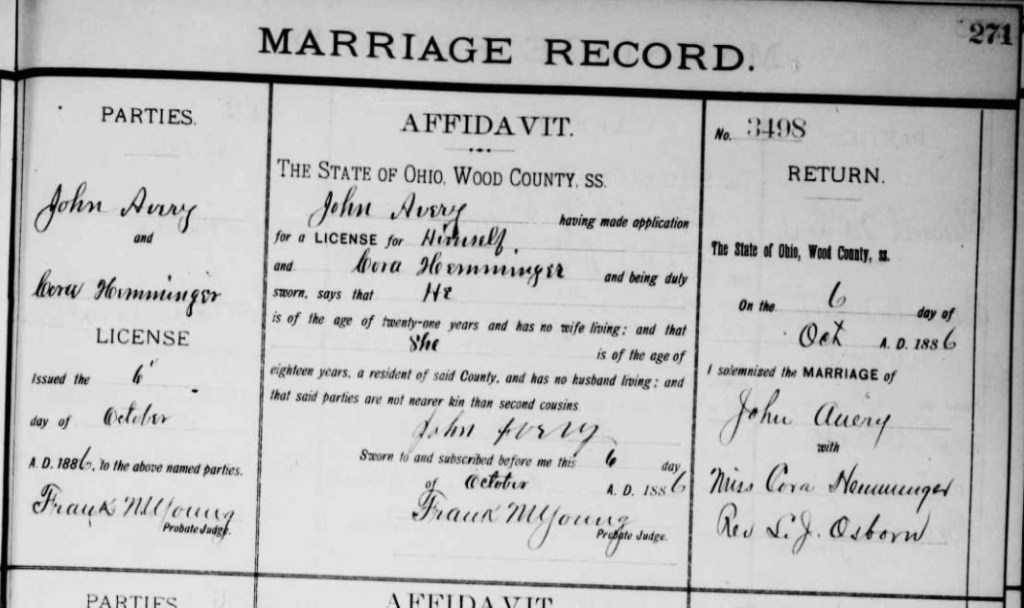 271
MARRIAGE RECORD.
PARTIES.
John Avery
and
Cora Hemminger
LICENSE
Issued the 6
day of October
A. D. 1886, to the above named parties.
Frank M Young
Probate Judge.
AFFIDAVIT.
THE STATE OF OHIO, WOOD COUNTY, SS.
John Avery having made application
for a LICENSE for Himself.
and Cora Hemminger and being duly
sworn, says that He
is of the age of twenty-one years and has no wife living; and that
She is of the age of
eighteen years, a resident of said County, and has no husband living; and
that said parties are not nearer kin than second cousins
John Avery
Sworn to and subscribed before me this 6 day
of October A. D. 1886
Frank M Young
Probate Judge.
No. 3498
RETURN.
The State of Ohio, Wood County, ss.
On the 6 day of
Oct A. D. 1886
I solemnized the MARRIAGE of
John Avery
with
Miss Cora Hemminger
Rev L. J. Osborn
PARTIES
AFFIDAVIT